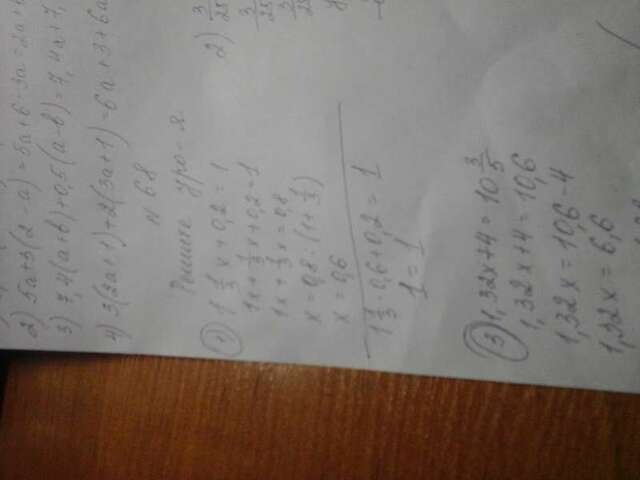 2) 5a+3(2-a)=5a+6-3a=2a+
3) 7,4(a+b)+0,5(a-b)=7,4a+7,
4) 3(2a+1)+2(3a+1)=6a+3+6a
N 68
Решите ура-я.
1) 1 1/3 x+0,2=1
1x+1/3x+0,2=1
1x+1/3x=0,8
x=0,8:(1+1/3)
x=0,6
1 1/3·0,6+0,2=1
1=1
2) 3/25
3/25
3/25
3) 1,32x+4=10 3/5
1,32x+4=10,6
1,32x=10,6-4
1,32x=6,6